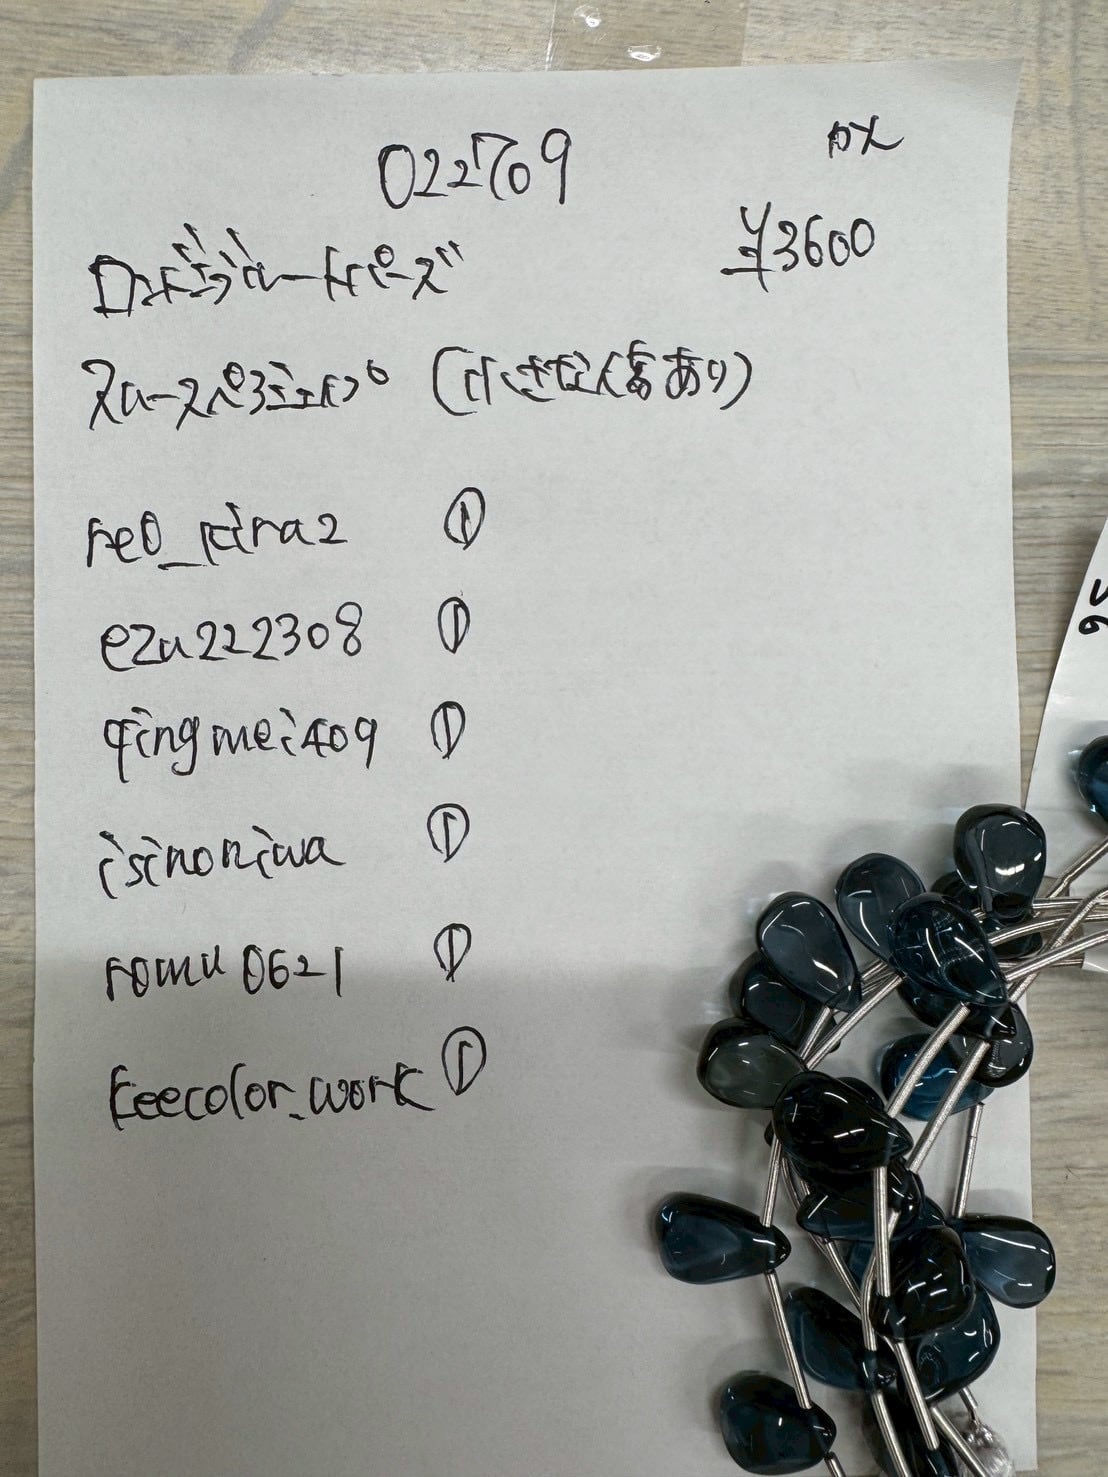 022709
DX
¥3600
ロンドンブルートパーズ
スムースペアシェイプ (小さな傷あり)
reo_kira2 ①
ezu222308 ①
qingmei409 ①
isinoniwa ①
romu0621 ①
keecolor_work ①